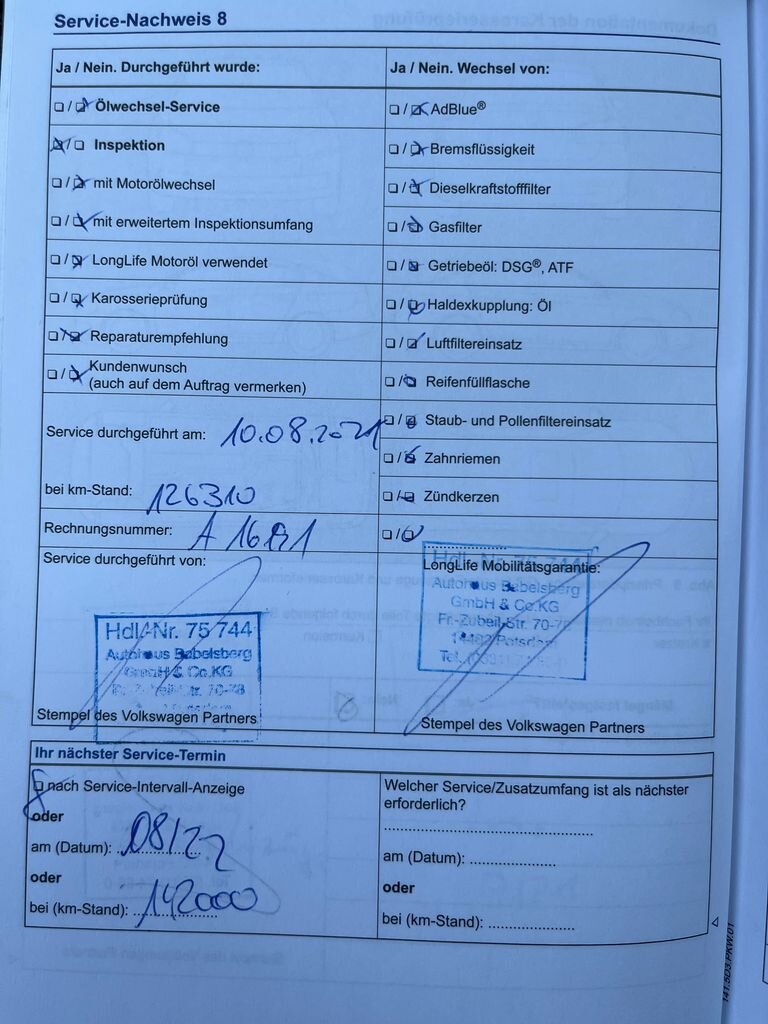 Service-Nachweis 8
Ja / Nein. Durchgeführt wurde:
Ölwechsel-Service
Inspektion
mit Motorölwechsel
mit erweitertem Inspektionsumfang
LongLife Motoröl verwendet
Karosserieprüfung
Reparaturempfehlung
Kundenwunsch
(auch auf dem Auftrag vermerken)
Service durchgeführt am: 10.08.2021
bei km-Stand: 126310
Rechnungsnummer: A
Service durchgeführt von:
Hdl.-Nr. 75 744
Autohaus Babelsberg
GmbH & Co.KG
Str. 70-78
Stempel des Volkswagen Partners
Ja / Nein. Wechsel von:
AdBlue®
Bremsflüssigkeit
Dieselkraftstofffilter
Gasfilter
Getriebeöl: DSG®, ATF
Haldexkupplung: Öl
Luftfiltereinsatz
Reifenfüllflasche
Staub- und Pollenfiltereinsatz
Zahnriemen
Zündkerzen
LongLife Mobilitätsgarantie:
Autohaus Babelsberg
GmbH & Co.KG
Fr.-Zubeil-Str. 70-78
14482 Potsdam
Tel.
Stempel des Volkswagen Partners
Ihr nächster Service-Termin
nach Service-Intervall-Anzeige
oder
am (Datum): 08/22
oder
bei (km-Stand): 142000
Welcher Service/Zusatzumfang ist als nächster
erforderlich?
am (Datum):
oder
bei (km-Stand):
141.5D3.PKW.01